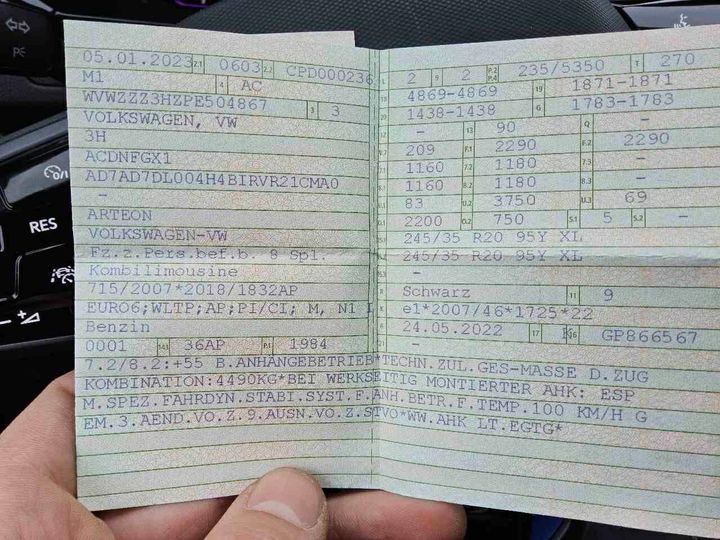 05.01.2023 2.1 0603 2.2 CPD000236
M1 4 AC
WVWZZZ3HZPE504867 3 3
VOLKSWAGEN, VW
3H
ACDNFGX1
AD7AD7DL004H4BIRVR21CMA0
-
ARTEON
VOLKSWAGEN-VW
Fz.z.Pers.bef.b. 8 Spl.
Kombilimousine
715/2007*2018/1832AP
EURO6;WLTP;AP;PI/CI; M, N1 I
Benzin
0001 14.1 36AP P.1 1984
L 2 9 2 P.2 P.4 235/5350 T 270
18 4869-4869 19 1871-1871
20 1438-1438 G 1783-1783
- 13 90 Q -
209 F.1 2290 F.2 2290
1160 7.2 1180 7.3 -
1160 8.2 1180 8.3 -
83 U.2 3750 U.3 69
2200 O.2 750 S.1 5 S.2 -
245/35 R20 95Y XL
245/35 R20 95Y XL
-
Schwarz 11 9
e1*2007/46*1725*22
24.05.2022 17 K 16 GP866567
-
7.2/8.2:+55 B.ANHÄNGEBETRIEB*TECHN.ZUL.GES-MASSE D.ZUG
KOMBINATION:4490KG*BEI WERKSEITIG MONTIERTER AHK: ESP
M.SPEZ.FAHRDYN.STABI.SYST.F.ANH.BETR.F.TEMP.100 KM/H G
EM.3.AEND.VO.Z.9.AUSN.VO.Z.STVO*WW.AHK LT.EGTG*
RES